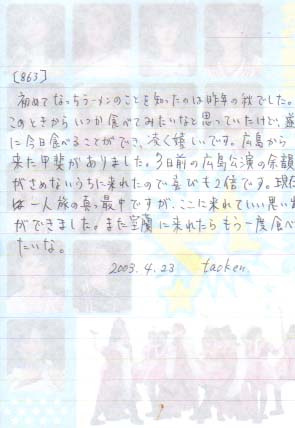 [863]
初めてなっちラーメンのことを知ったのは昨年の秋でした。
このときからいつか食べてみたいなと思っていたけど、遂
に今日食べることができ、凄く嬉しいです。広島から
来た甲斐がありました。3日前の広島公演の余韻
がさめないうちに来れたので喜びも2倍です。現在
は一人旅の真っ最中ですが、ここに来れていい思い出
ができました。また室蘭に来れたらもう一度食べ
たいな。
2003.4.23 taoken.